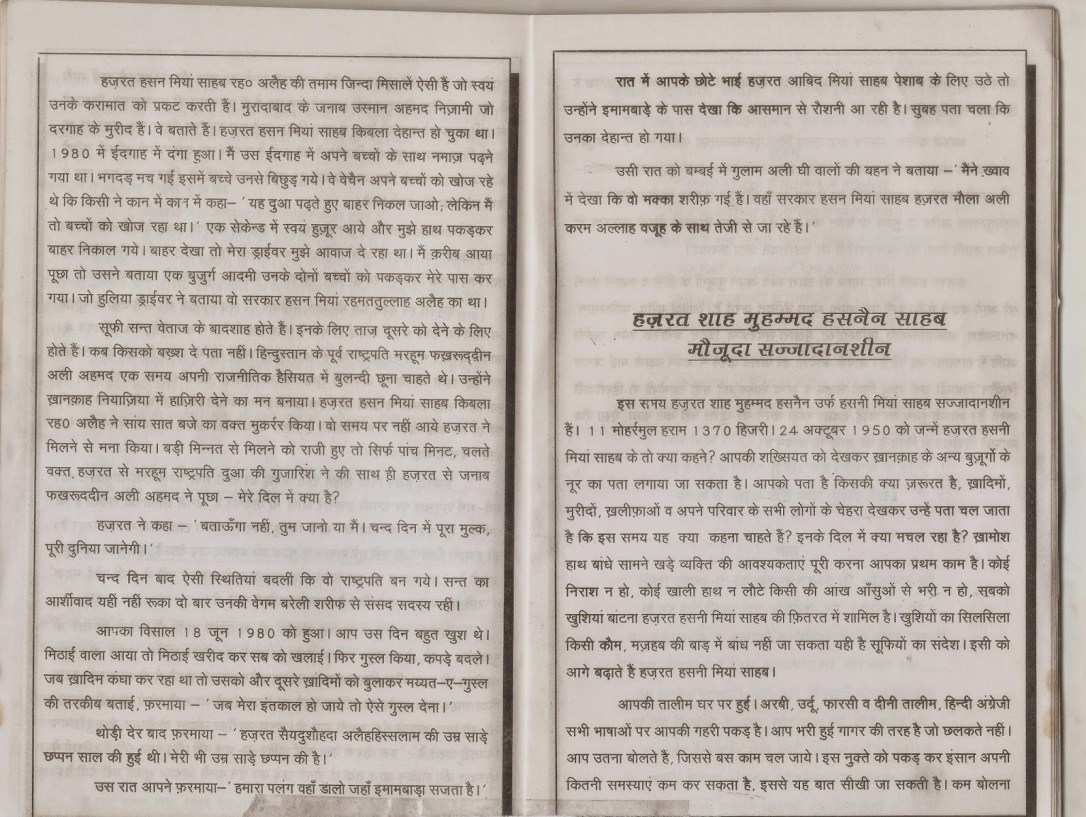 हज़रत हसन मियां साहब रह० अलैह की तमाम जिन्दा मिसालें ऐसी हैं जो स्वयं
उनके करामात को प्रकट करती हैं। मुरादाबाद के जनाब उस्मान अहमद निज़ामी जो
दरगाह के मुरीद हैं। वे बताते हैं। हज़रत हसन मियां साहब किबला देहान्त हो चुका था।
1980 में ईदगाह में दंगा हुआ। मैं उस ईदगाह में अपने बच्चों के साथ नमाज़ पढ़ने
गया था। भगदड़ मच गई इसमें बच्चे उनसे बिछुड़ गये। वे वेचैन अपने बच्चों को खोज रहे
थे कि किसी ने कान में कान में कहा– 'यह दुआ पढ़ते हुए बाहर निकल जाओ; लेकिन मैं
तो बच्चों को खोज रहा था।' एक सेकेन्ड में स्वयं हुज़ूर आये और मुझे हाथ पकड़कर
बाहर निकाल गये। बाहर देखा तो मेरा ड्राईवर मुझे आवाज दे रहा था। मैं क़रीब आया
पूछा तो उसने बताया एक बुजुर्ग आदमी उनके दोनों बच्चों को पकड़कर मेरे पास कर
गया। जो हुलिया ड्राईवर ने बताया वो सरकार हसन मियां रहमततुल्लाह अलैह का था।
सूफी सन्त वेताज के बादशाह होते हैं। इनके लिए ताज़ दूसरे को देने के लिए
होते हैं। कब किसको बख़्श दे पता नहीं। हिन्दुस्तान के पूर्व राष्ट्रपति मरहूम फख़रूददीन
अली अहमद एक समय अपनी राजनीतिक हैसियत में बुलन्दी छूना चाहते थे। उन्होंने
ख़ानक़ाह नियाज़िया में हाज़िरी देने का मन बनाया। हज़रत हसन मियां साहब किबला
रह० अलैह ने सांय सात बजे का वक्त मुकर्रर किया। वो समय पर नहीं आये हज़रत ने
मिलने से मना किया। बड़ी मिन्नत से मिलने को राजी हुए तो सिर्फ पांच मिनट, चलते
वक्त हज़रत से मरहूम राष्ट्रपति दुआ की गुजारिश ने की साथ ही हज़रत से जनाब
फखरूददीन अली अहमद ने पूछा – मेरे दिल में क्या है?
हज़रत ने कहा – 'बताऊँगा नहीं, तुम जानो या मैं। चन्द दिन में पूरा मुल्क,
पूरी दुनिया जानेगी।'
चन्द दिन बाद ऐसी स्थितियां बदलीं कि वो राष्ट्रपति बन गये। सन्त का
आर्शीवाद यहीं नहीं रूका दो बार उनकी वेगम बरेली शरीफ से संसद सदस्य रहीं।
आपका विसाल 18 जून 1980 को हुआ। आप उस दिन बहुत खुश थे।
मिठाई वाला आया तो मिठाई खरीद कर सब को खलाई। फिर गुस्ल किया, कपड़े बदले।
जब ख़ादिम कंघा कर रहा था तो उसको और दूसरे ख़ादिमों को बुलाकर मय्यत–ए–गुस्ल
की तरकीब बताई, फ़रमाया – 'जब मेरा इंतकाल हो जाये तो ऐसे गुस्ल देना।'
थोड़ी देर बाद फ़रमाया – 'हज़रत सैयदुशौहदा अलैहहिस्सलाम की उम्र साड़े
छप्पन साल की हुई थी। मेरी भी उम्र साड़े छप्पन की है।'
उस रात आपने फ़रमाया–' हमारा पलंग वहाँ डालो जहाँ इमामबाड़ा सजता है।'
रात में आपके छोटे भाई हज़रत आबिद मियां साहब पेशाब के लिए उठे तो
उन्होंने इमामबाड़े के पास देखा कि आसमान से रौशनी आ रही है। सुबह पता चला कि
उनका देहान्त हो गया।
उसी रात को बम्बई में गुलाम अली घी वालों की बहन ने बताया –' मैंने ख़्वाव
में देखा कि वो मक्का शरीफ़ गई हैं। वहाँ सरकार हसन मियां साहब हज़रत मौला अली
करम अल्लाह वजूह के साथ तेजी से जा रहे हैं।'
हज़रत शाह मुहम्मद हसनैन साहब
मौजूदा सज्जादानशीन
इस समय हज़रत शाह मुहम्मद हसनैन उर्फ हसनी मियां साहब सज्जादानशीन
हैं। 11 मोहर्रमुल हराम 1370 हिजरी। 24 अक्टूबर 1950 को जन्में हज़रत हसनी
मियां साहब के तो क्या कहने? आपकी शख़्सियत को देखकर ख़ानक़ाह के अन्य बुज़ुर्गो के
नूर का पता लगाया जा सकता है। आपको पता है किसकी क्या ज़रूरत है, ख़ादिमों,
मुरीदों, ख़लीफ़ाओं व अपने परिवार के सभी लोगों के चेहरा देखकर उन्हें पता चल जाता
है कि इस समय यह क्या कहना चाहते हैं? इनके दिल में क्या मचल रहा है? ख़ामोश
हाथ बांधे सामने खड़े व्यक्ति की आवश्यकताएं पूरी करना आपका प्रथम काम है। कोई
निराश न हो, कोई खाली हाथ न लौटे किसी की आंख आँसुओं से भरी न हो, सबको
खुशियां बांटना हज़रत हसनी मियां साहब की फ़ितरत में शामिल है। खुशियों का सिलसिला
किसी कौम, मज़हब की बाड़ में बांध नहीं जा सकता यही है सूफियों का संदेश। इसी को
आगे बढ़ाते हैं हज़रत हसनी मियां साहब।
आपकी तालीम घर पर हुई। अरबी, उर्दू, फारसी व दीनी तालीम, हिन्दी अंग्रेजी
सभी भाषाओं पर आपकी गहरी पकड़ है। आप भरी हुई गागर की तरह है जो छलकते नहीं।
आप उतना बोलते हैं, जिससे बस काम चल जाये। इस नुक्ते को पकड़ कर इंसान अपनी
कितनी समस्याएं कम कर सकता है, इससे यह बात सीखी जा सकती है। कम बोलना